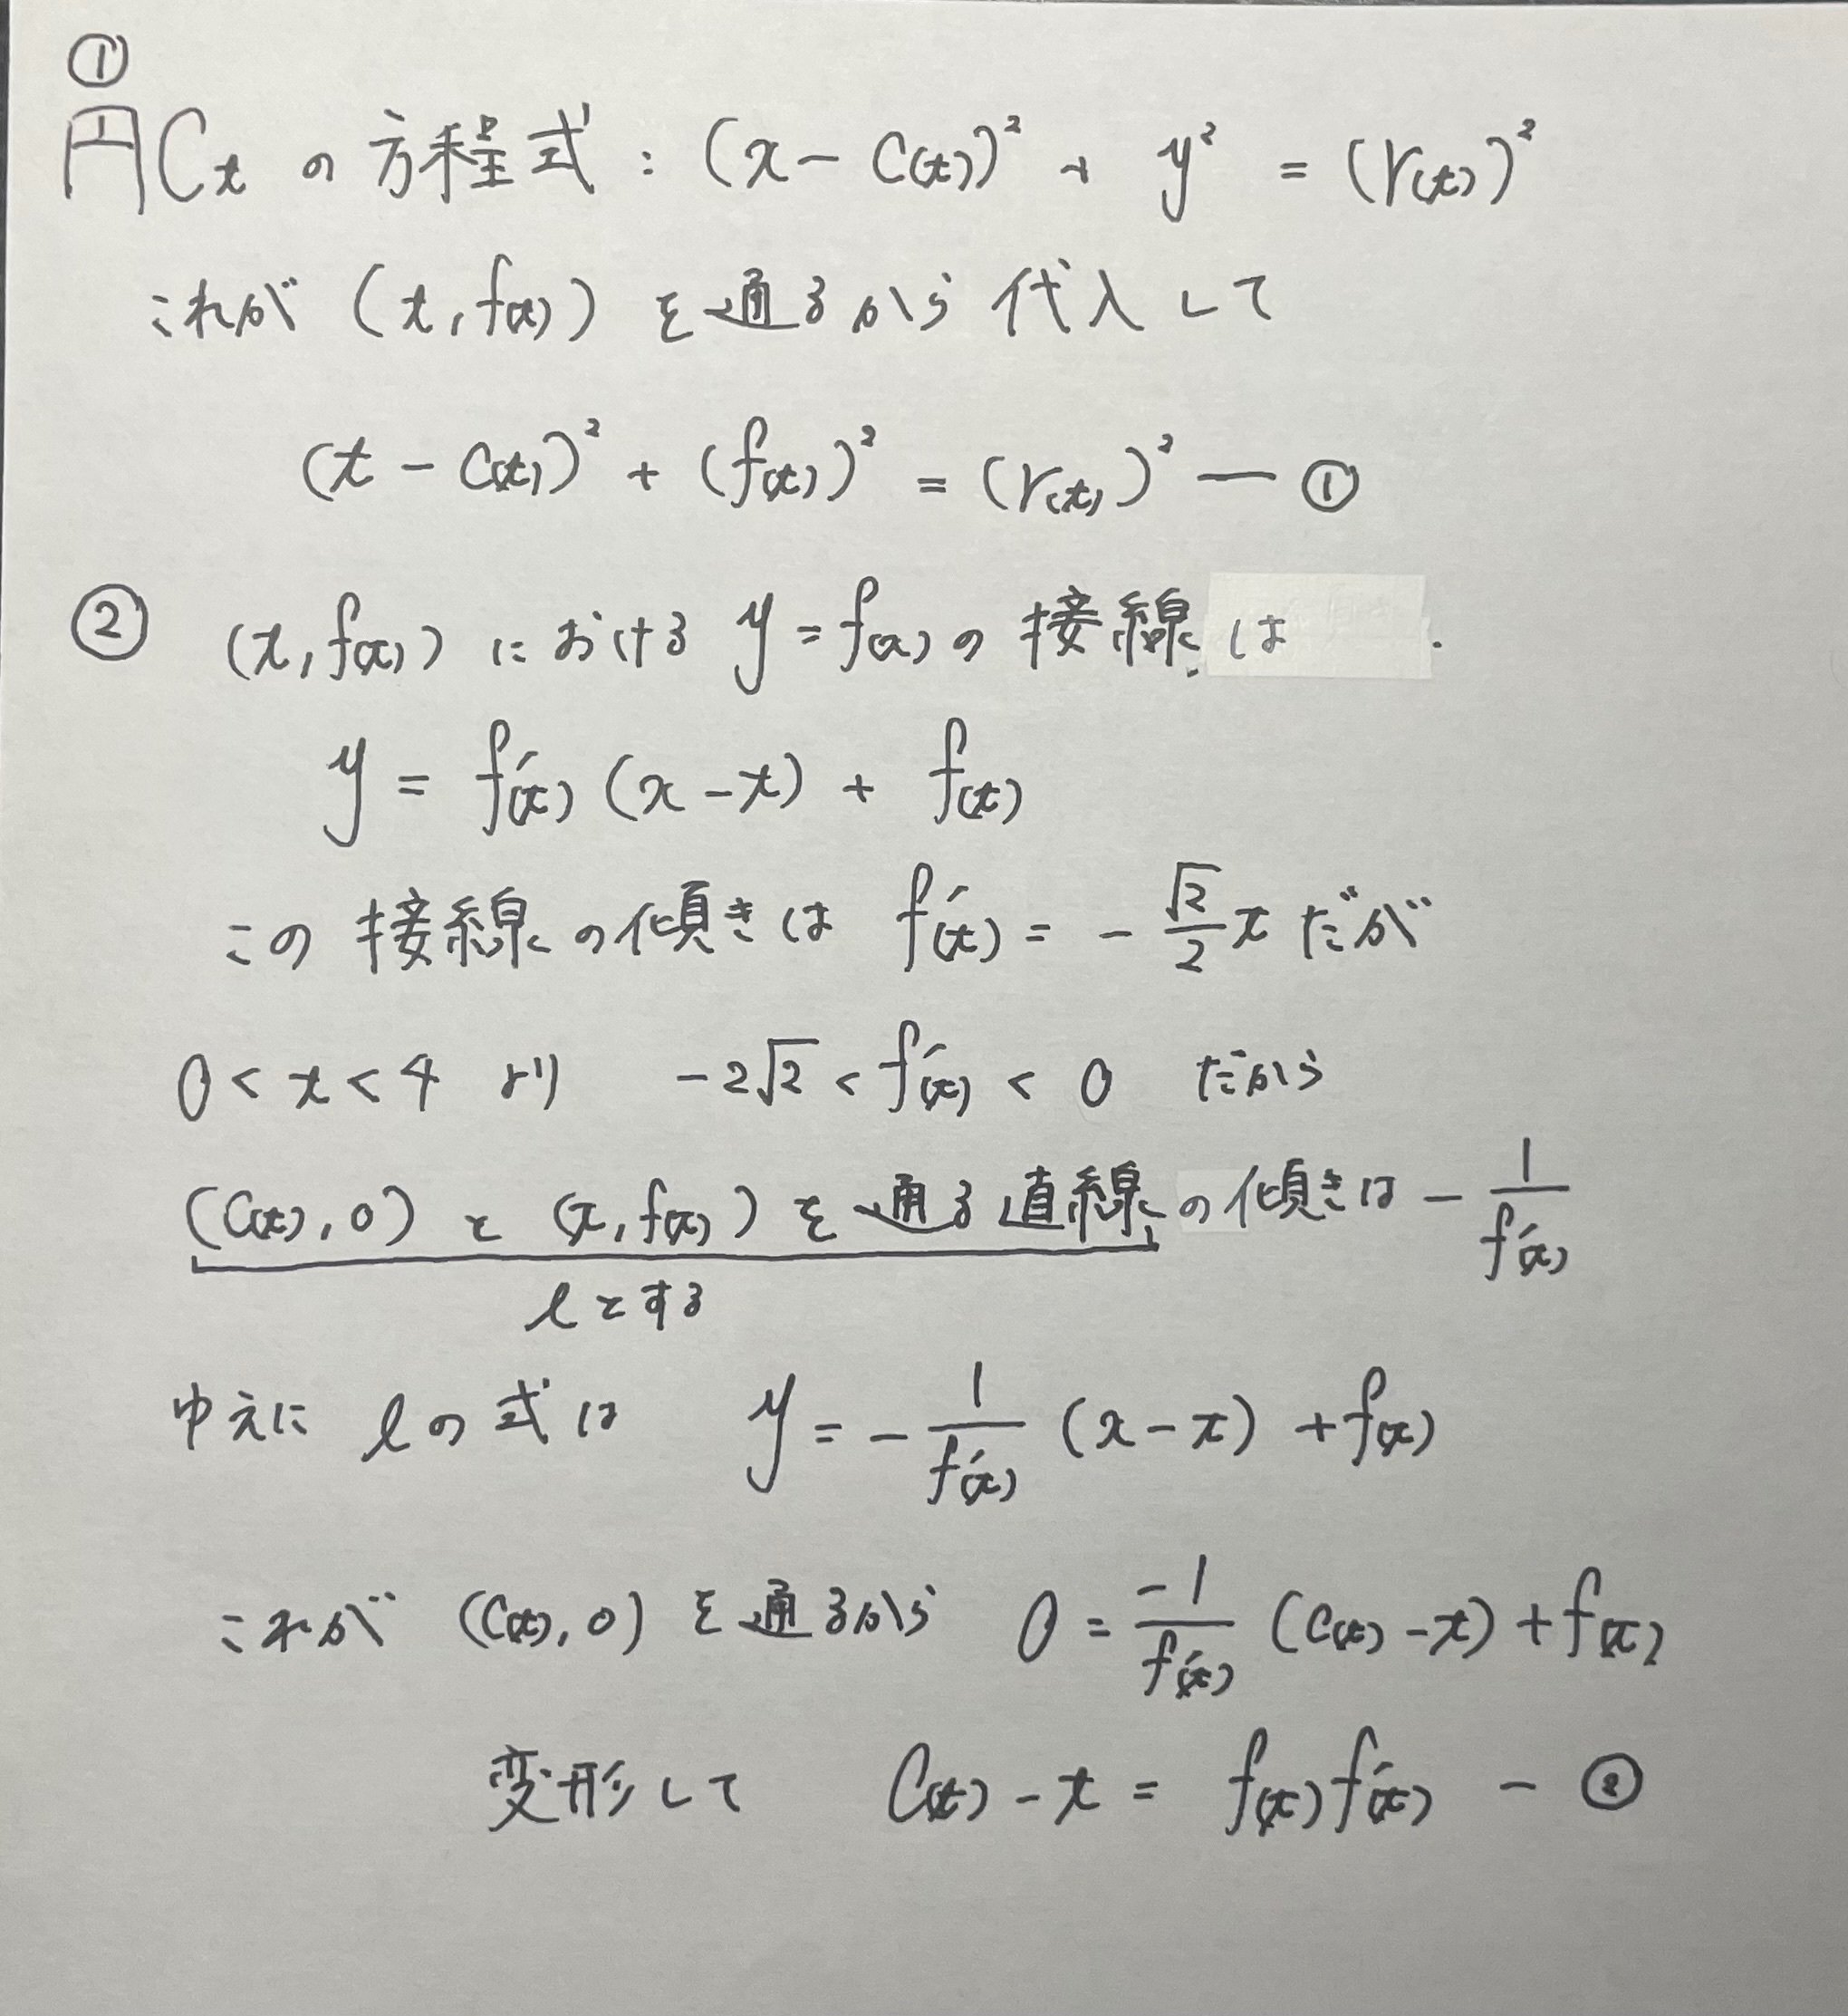 ①
円Ctの方程式:(x-C(t))²+y²=(r(t))²
これが(t,f(t))を通るから代入して
(t-C(t))²+(f(t))²=(r(t))²—①
② (t,f(t))におけるy=f(x)の接線は
y=f'(t)(x-t)+f(t)
この接線の傾きはf'(t)=-√2/2 tだが
0<t<4より -2√2<f'(t)<0 だから
(C(t),0)と(t,f(t))を通る直線の傾きは-1/f'(t)
lとする
ゆえに lの式は y=-1/f'(t)(x-t)+f(t)
これが(C(t),0)を通るから 0=-1/f'(t)(C(t)-t)+f(t)
変形して C(t)-t=f(t)f'(t)-②